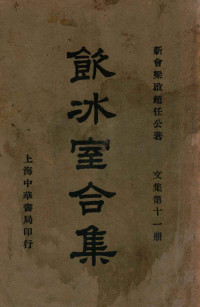 新會梁啟超任公著
文集第十一册
飲冰室合集
上海中華書局印行